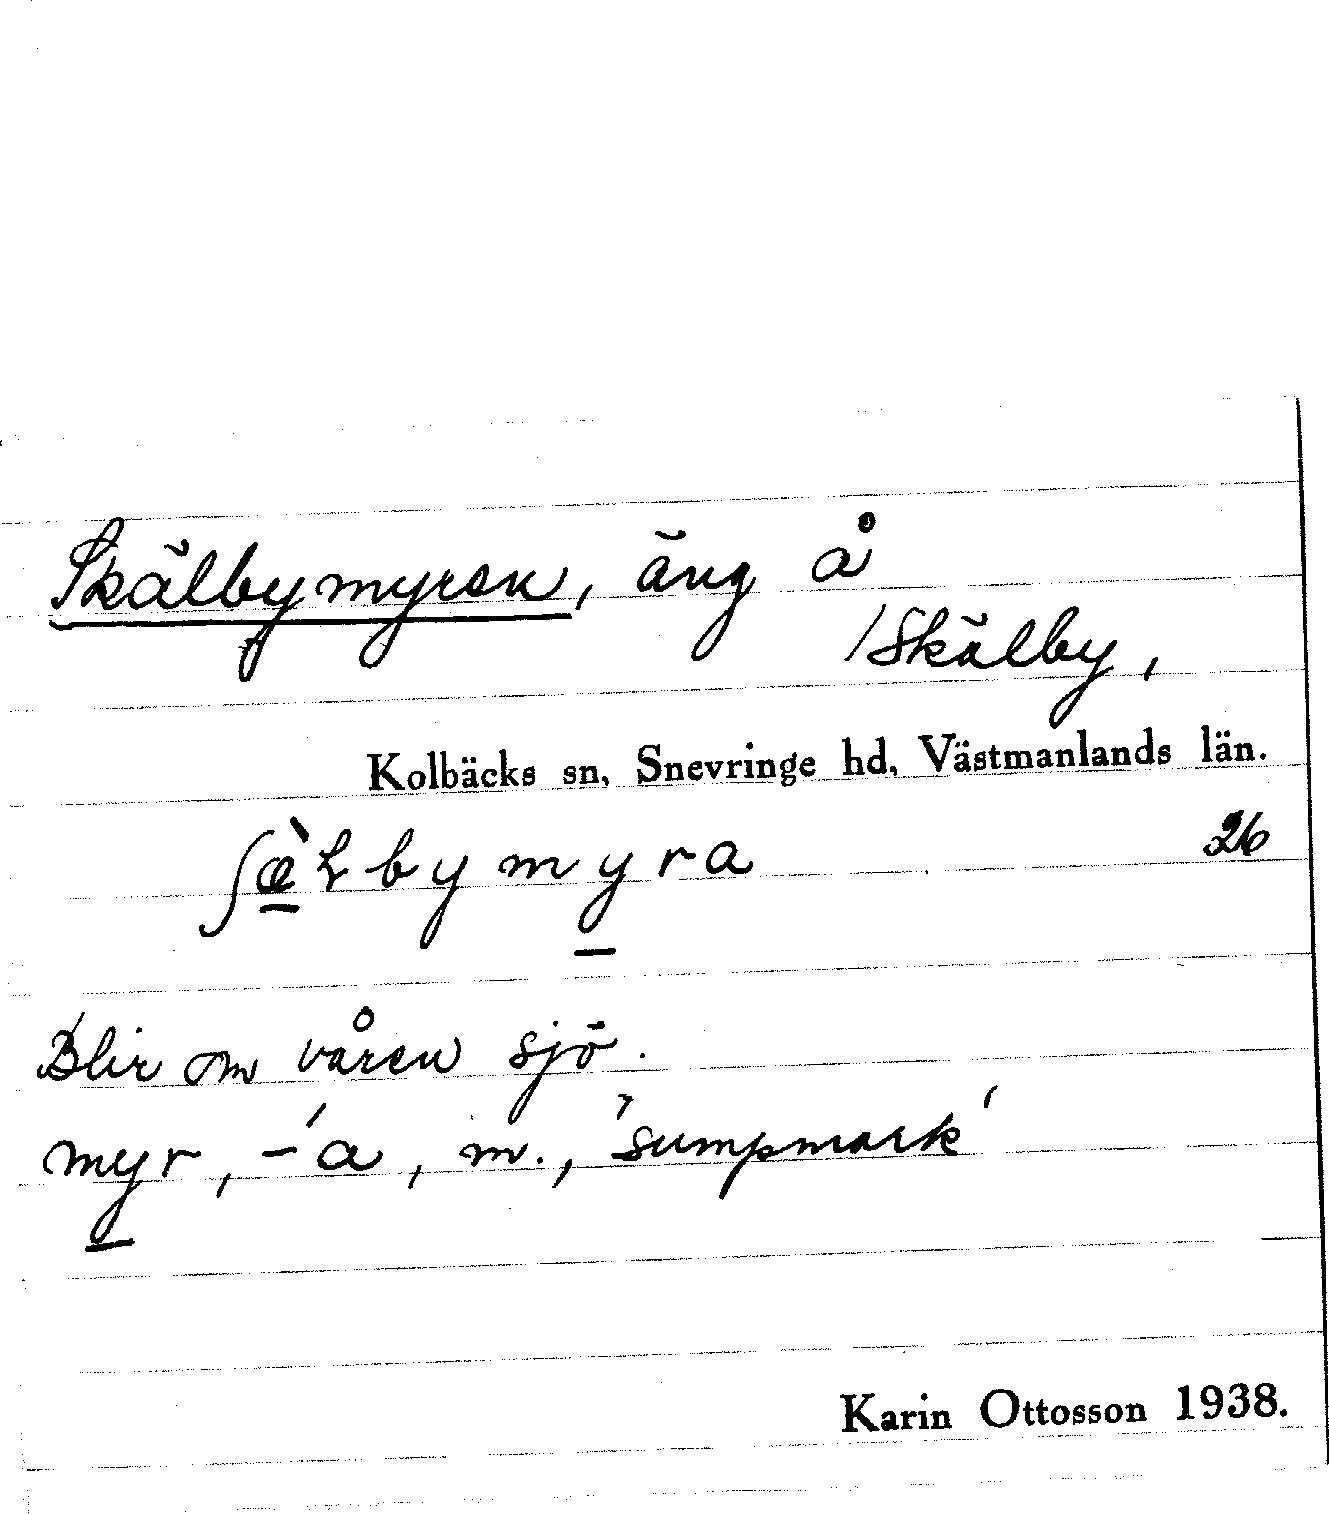 Skälbymyren, äng å
/Skälby,
Kolbäcks sn, Snevringe hd, Västmanlands län.
ʃæ̀ɫbymyra 26
Blir om våren sjö.
myr, -´a, m., 'sumpmark'
Karin Ottosson 1938.